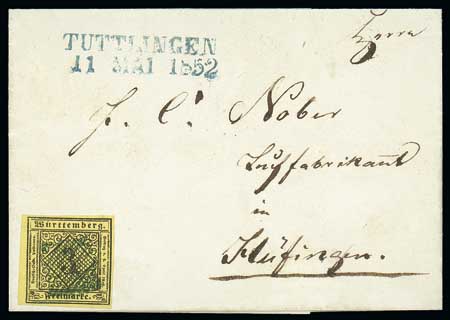 TUTTLINGEN
11 MAI 1852
Herrn
F. C. Nober
Tuchfabrikant
in
Hüfingen.
Württemberg.
3
Freimarke.